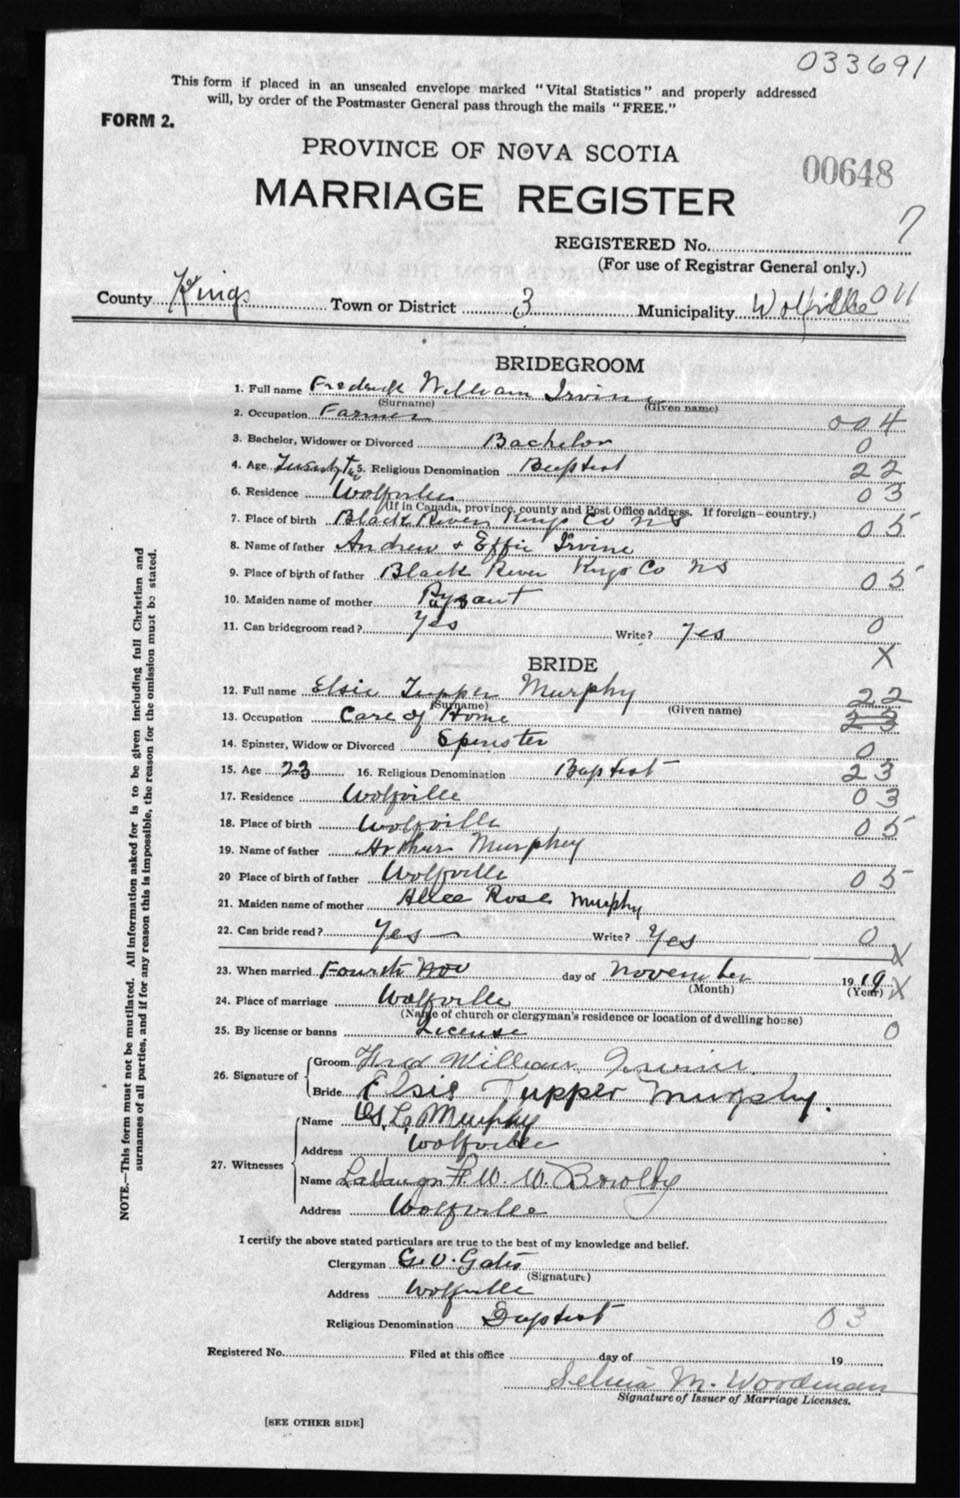 033691
This form if placed in an unsealed envelope marked "Vital Statistics" and properly addressed
will, by order of the Postmaster General pass through the mails "FREE."
FORM 2.
PROVINCE OF NOVA SCOTIA
00648
MARRIAGE REGISTER
7
REGISTERED No.
(For use of Registrar General only.)
County Kings Town or District 3 Municipality Wolfville 011
BRIDEGROOM
1. Full name Fredrick William Irvine
(Surname) (Given name)
2. Occupation Farmer 004
3. Bachelor, Widower or Divorced Bachelor 0
4. Age Twenty Two 5. Religious Denomination Baptist 22
6. Residence Wolfville 03
(If in Canada, province, county and Post Office address. If foreign—country.)
7. Place of birth Black River Kings Co NS 05
8. Name of father Andrew & Effie Irvine
9. Place of birth of father Black River Kings Co NS 05
10. Maiden name of mother
11. Can bridegroom read? Yes Write? Yes 0
X
BRIDE
12. Full name Elsie Tupper Murphy 22
(Surname) (Given name)
13. Occupation Care of Home 23
14. Spinster, Widow or Divorced Spinster 0
15. Age 23 16. Religious Denomination Baptist 23
17. Residence Wolfville 03
18. Place of birth Wolfville 05
19. Name of father Arthur Murphy
20 Place of birth of father Wolfville 05
21. Maiden name of mother Alice Rose Murphy
22. Can bride read? Yes Write? Yes 0
X
23. When married Fourth Nov day of November 1919 X
(Month) (Year)
24. Place of marriage Wolfville
(Name of church or clergyman's residence or location of dwelling house)
25. By license or banns License 0
26. Signature of
Groom Fred William Irvine.
Bride Elsie Tupper Murphy.
27. Witnesses
Name L. Murphy
Address Wolfville
Name W. W. Bowlby
Address Wolfville
I certify the above stated particulars are true to the best of my knowledge and belief.
Clergyman G. V. Gates
(Signature)
Address Wolfville
Religious Denomination Baptist 03
Registered No. Filed at this office day of 19
Selina M. Woodman
Signature of Issuer of Marriage Licenses.
[SEE OTHER SIDE]
NOTE.—This form must not be mutilated. All information asked for is to be given including full Christian and
surnames of all parties, and if for any reason this is impossible, the reason for the omission must be stated.